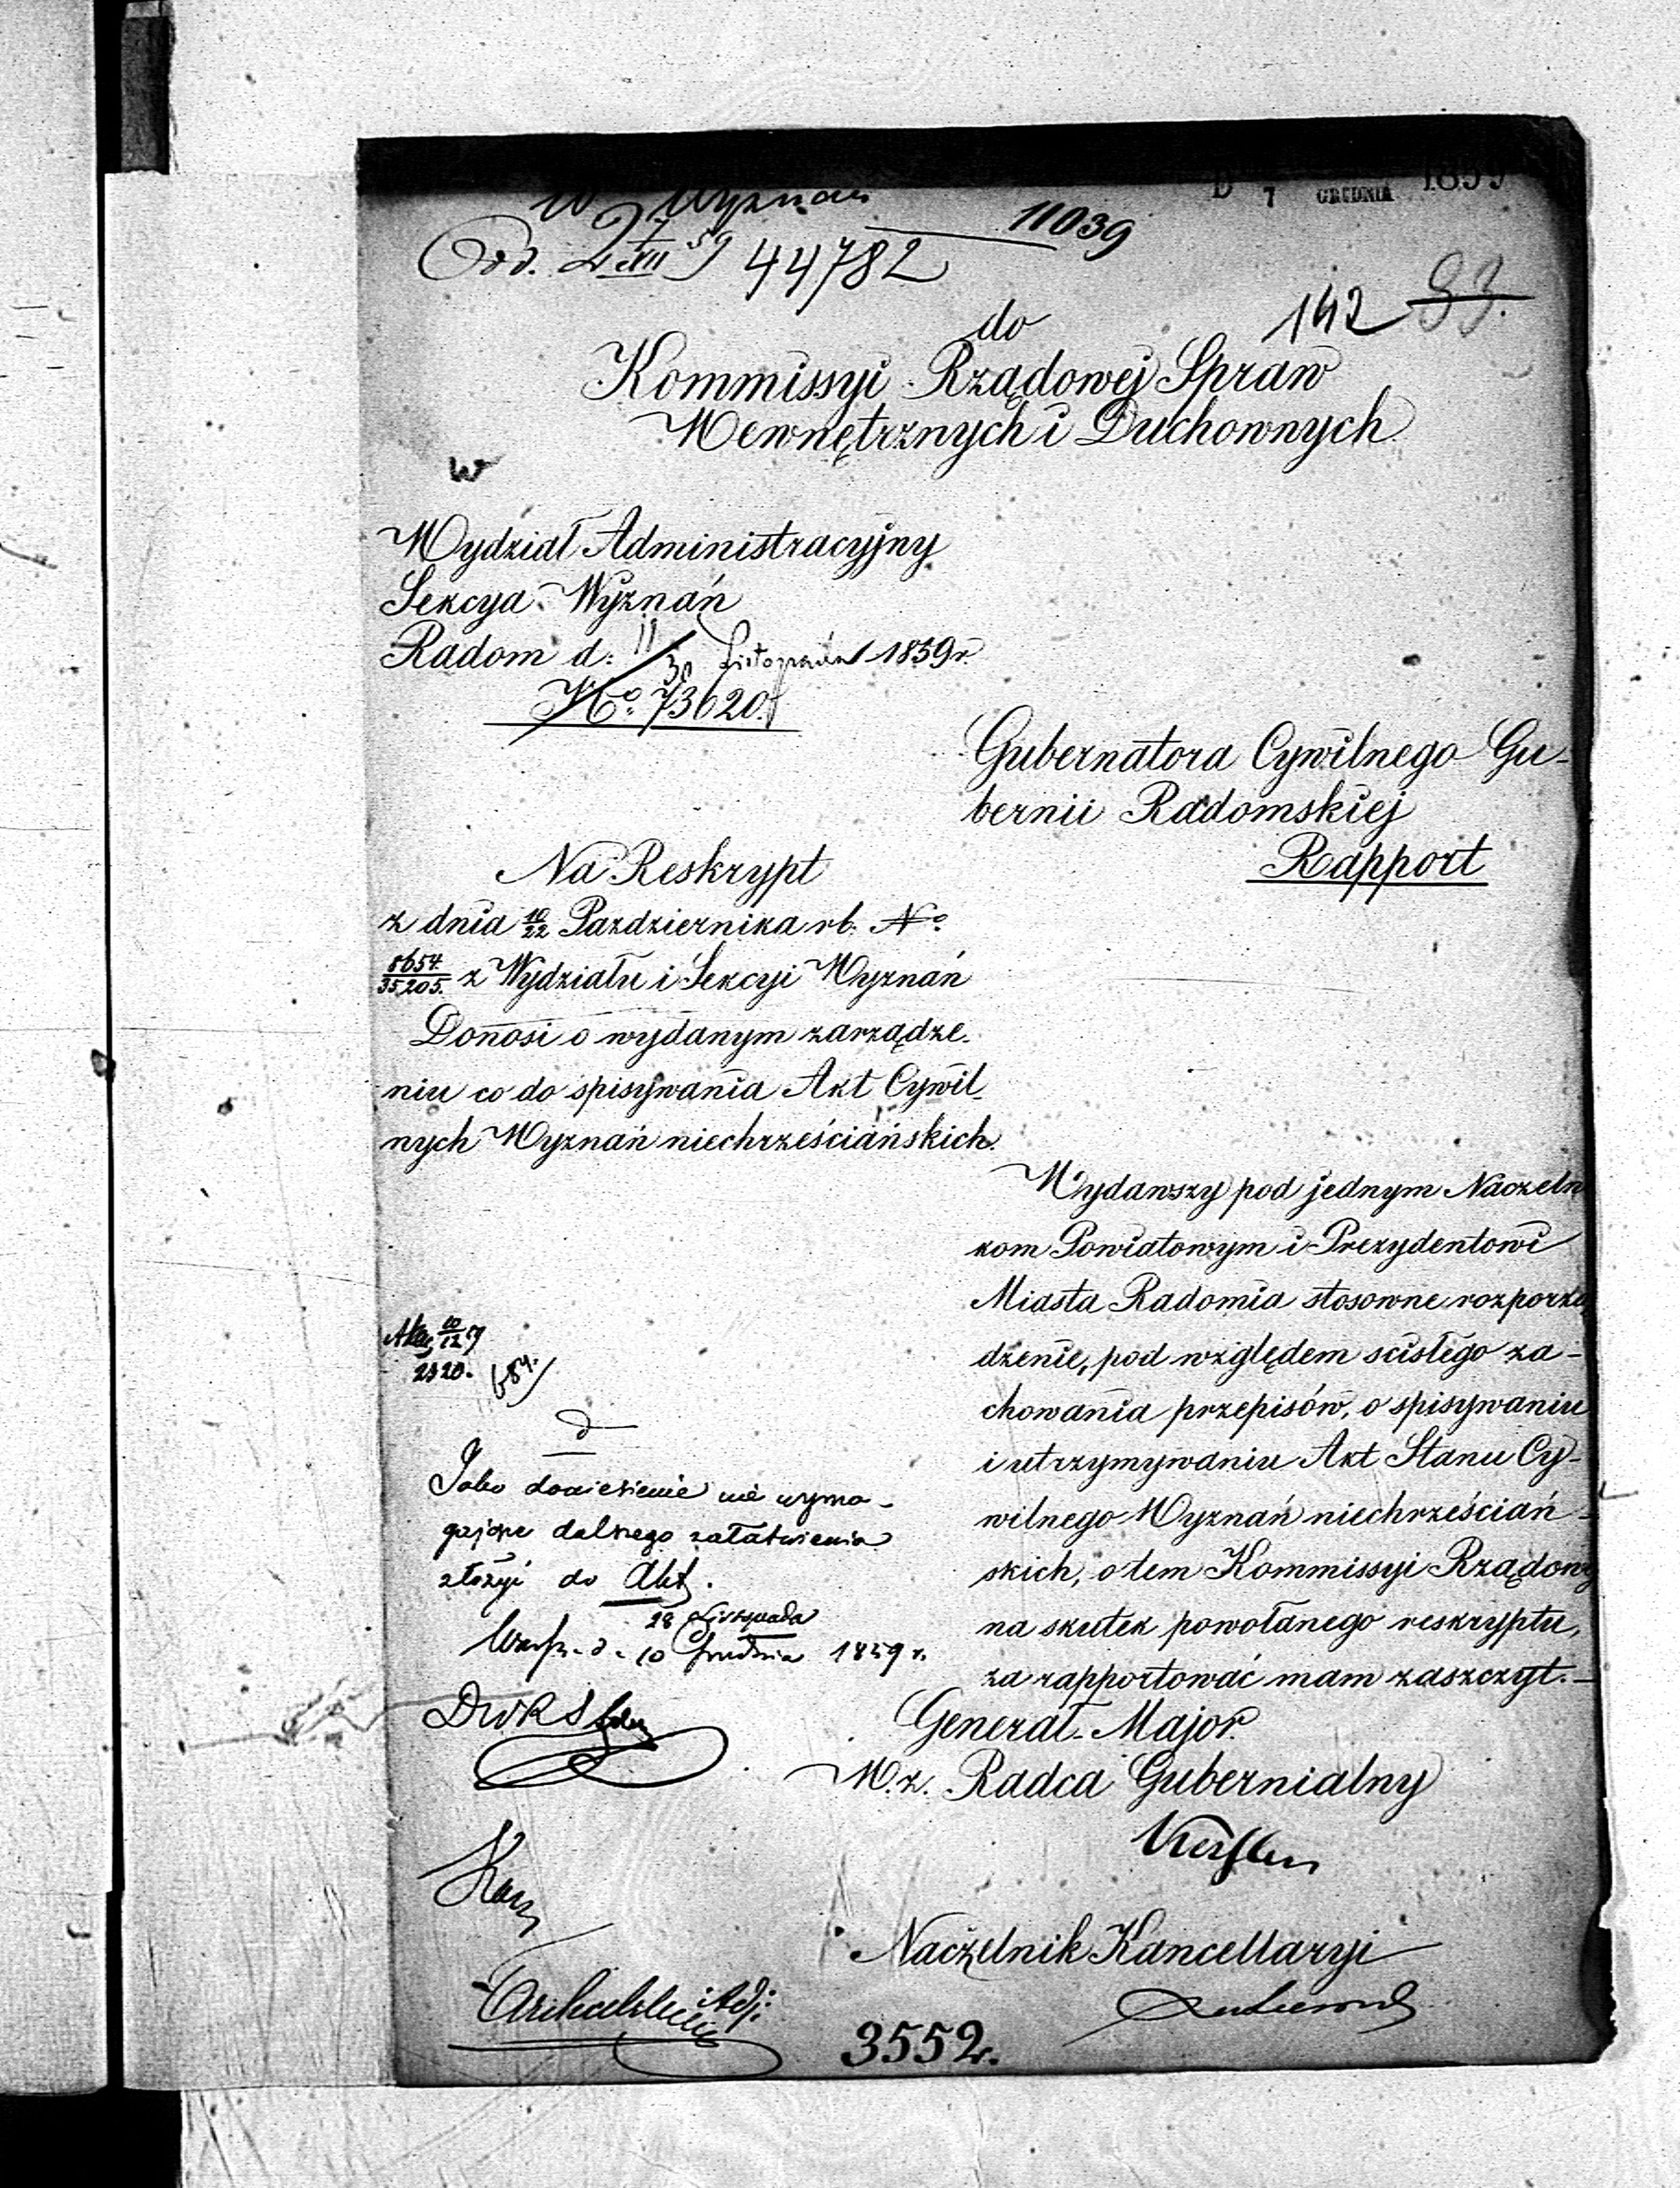 W Wyznań
D 7 GRUDNIA 1859
11039
Odd. 7/XII 59 44782
142 93.
do
Kommissyi Rządowej Spraw
Wewnętrznych i Duchownych
W
Wydział Administracyjny
Sekcya Wyznań
Radom d: 11/30 Listopada 1859 r.
No. 73620.
Gubernatora Cywilnego Gu-
bernii Radomskiej
Rapport
Na Reskrypt
z dnia 10/22 Pazdziernika rb. No
8654/35,205. z Wydziału i Sekcyi Wyznań
Donosi o wydanym zarządze-
niu co do spisywania Akt Cywil-
nych Wyznań niechrześciańskich.
Wydawszy pod jednym Naczelni
kom Powiatowym i Prezydentowi
Miasta Radomia stosowne rozporzą
dzenie, pod względem scisłego za-
chowania przepisów, o spisywaniu
i utrzymywaniu Akt Stanu Cy-
wilnego Wyznań niechrześciań-
skich, o tem Kommissyi Rządowej
na skutek powołanego reskryptu,
za rapportować mam zaszczyt.-
10/12
2920.
Jako doniesienie nie wyma-
gające dalszego załatwienia
złożyć do Akt.
28 Listopada
Warsz. d. 10 Grudnia 1859 r.
DWKS
General-Major
W.z. Radca Gubernialny
Naczelnik Kancellaryi
3552.